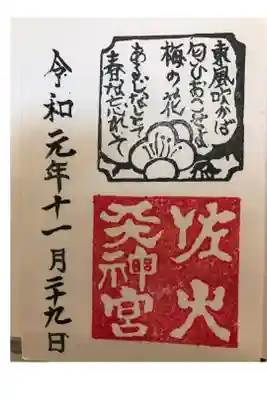 東風吹かば
匂ひおこせよ
梅の花
あるじなしとて
春な忘れそ
佐太
天神宮
令和元年十一月二十九日